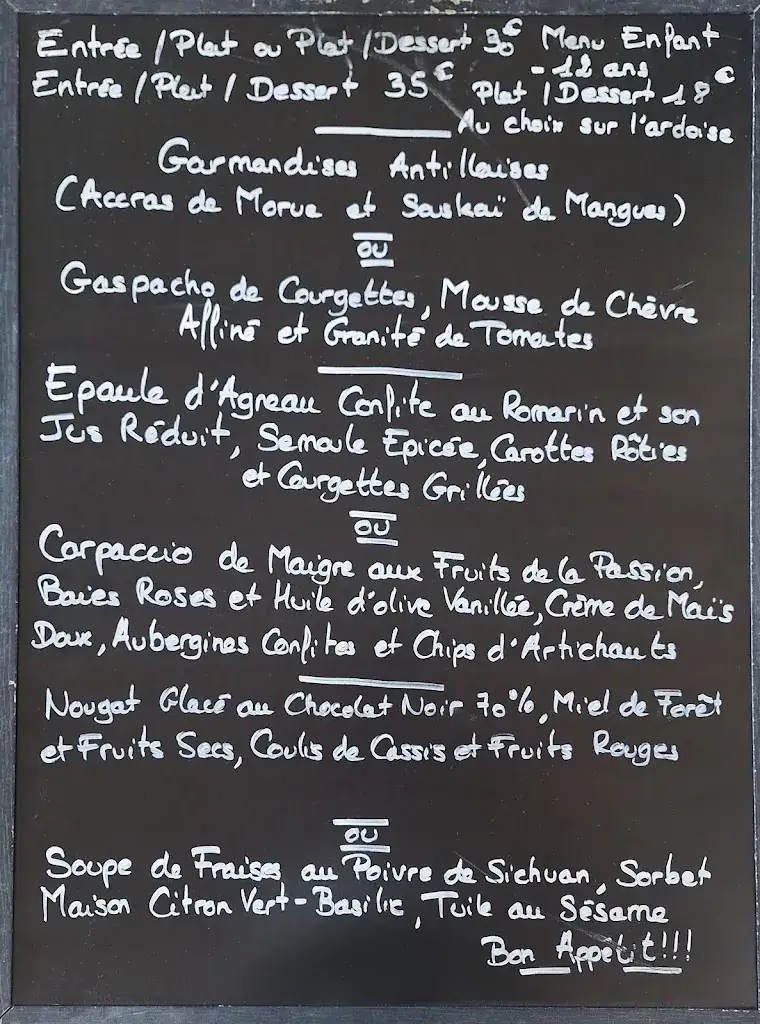 Entrée / Plat ou Plat / Dessert 30€ Menu Enfant
- 12 ans
Entrée / Plat / Dessert 35€ Plat / Dessert 18€
Au choix sur l'ardoise
Garmandises Antillaises
(Accras de Morue et Souskaï de Mangues)
ou
Gaspacho de Courgettes, Mousse de Chèvre
Affiné et Granité de Tomates
Epaule d'Agneau Confite au Romarin et son
Jus Réduit, Semoule Epicée, Carottes Rôties
et Courgettes Grillées
ou
Carpaccio de Maigre aux Fruits de la Passion,
Baies Roses et Huile d'olive Vanillée, Crème de Maïs
Doux, Aubergines Confites et Chips d'Artichauts
Nougat Glacé au Chocolat Noir 70%, Miel de Forêt
et Fruits Secs, Coulis de Cassis et Fruits Rouges
ou
Soupe de Fraises au Poivre de Sichuan, Sorbet
Maison Citron Vert-Basilic, Tuile au Sésame
Bon Appetit!!!